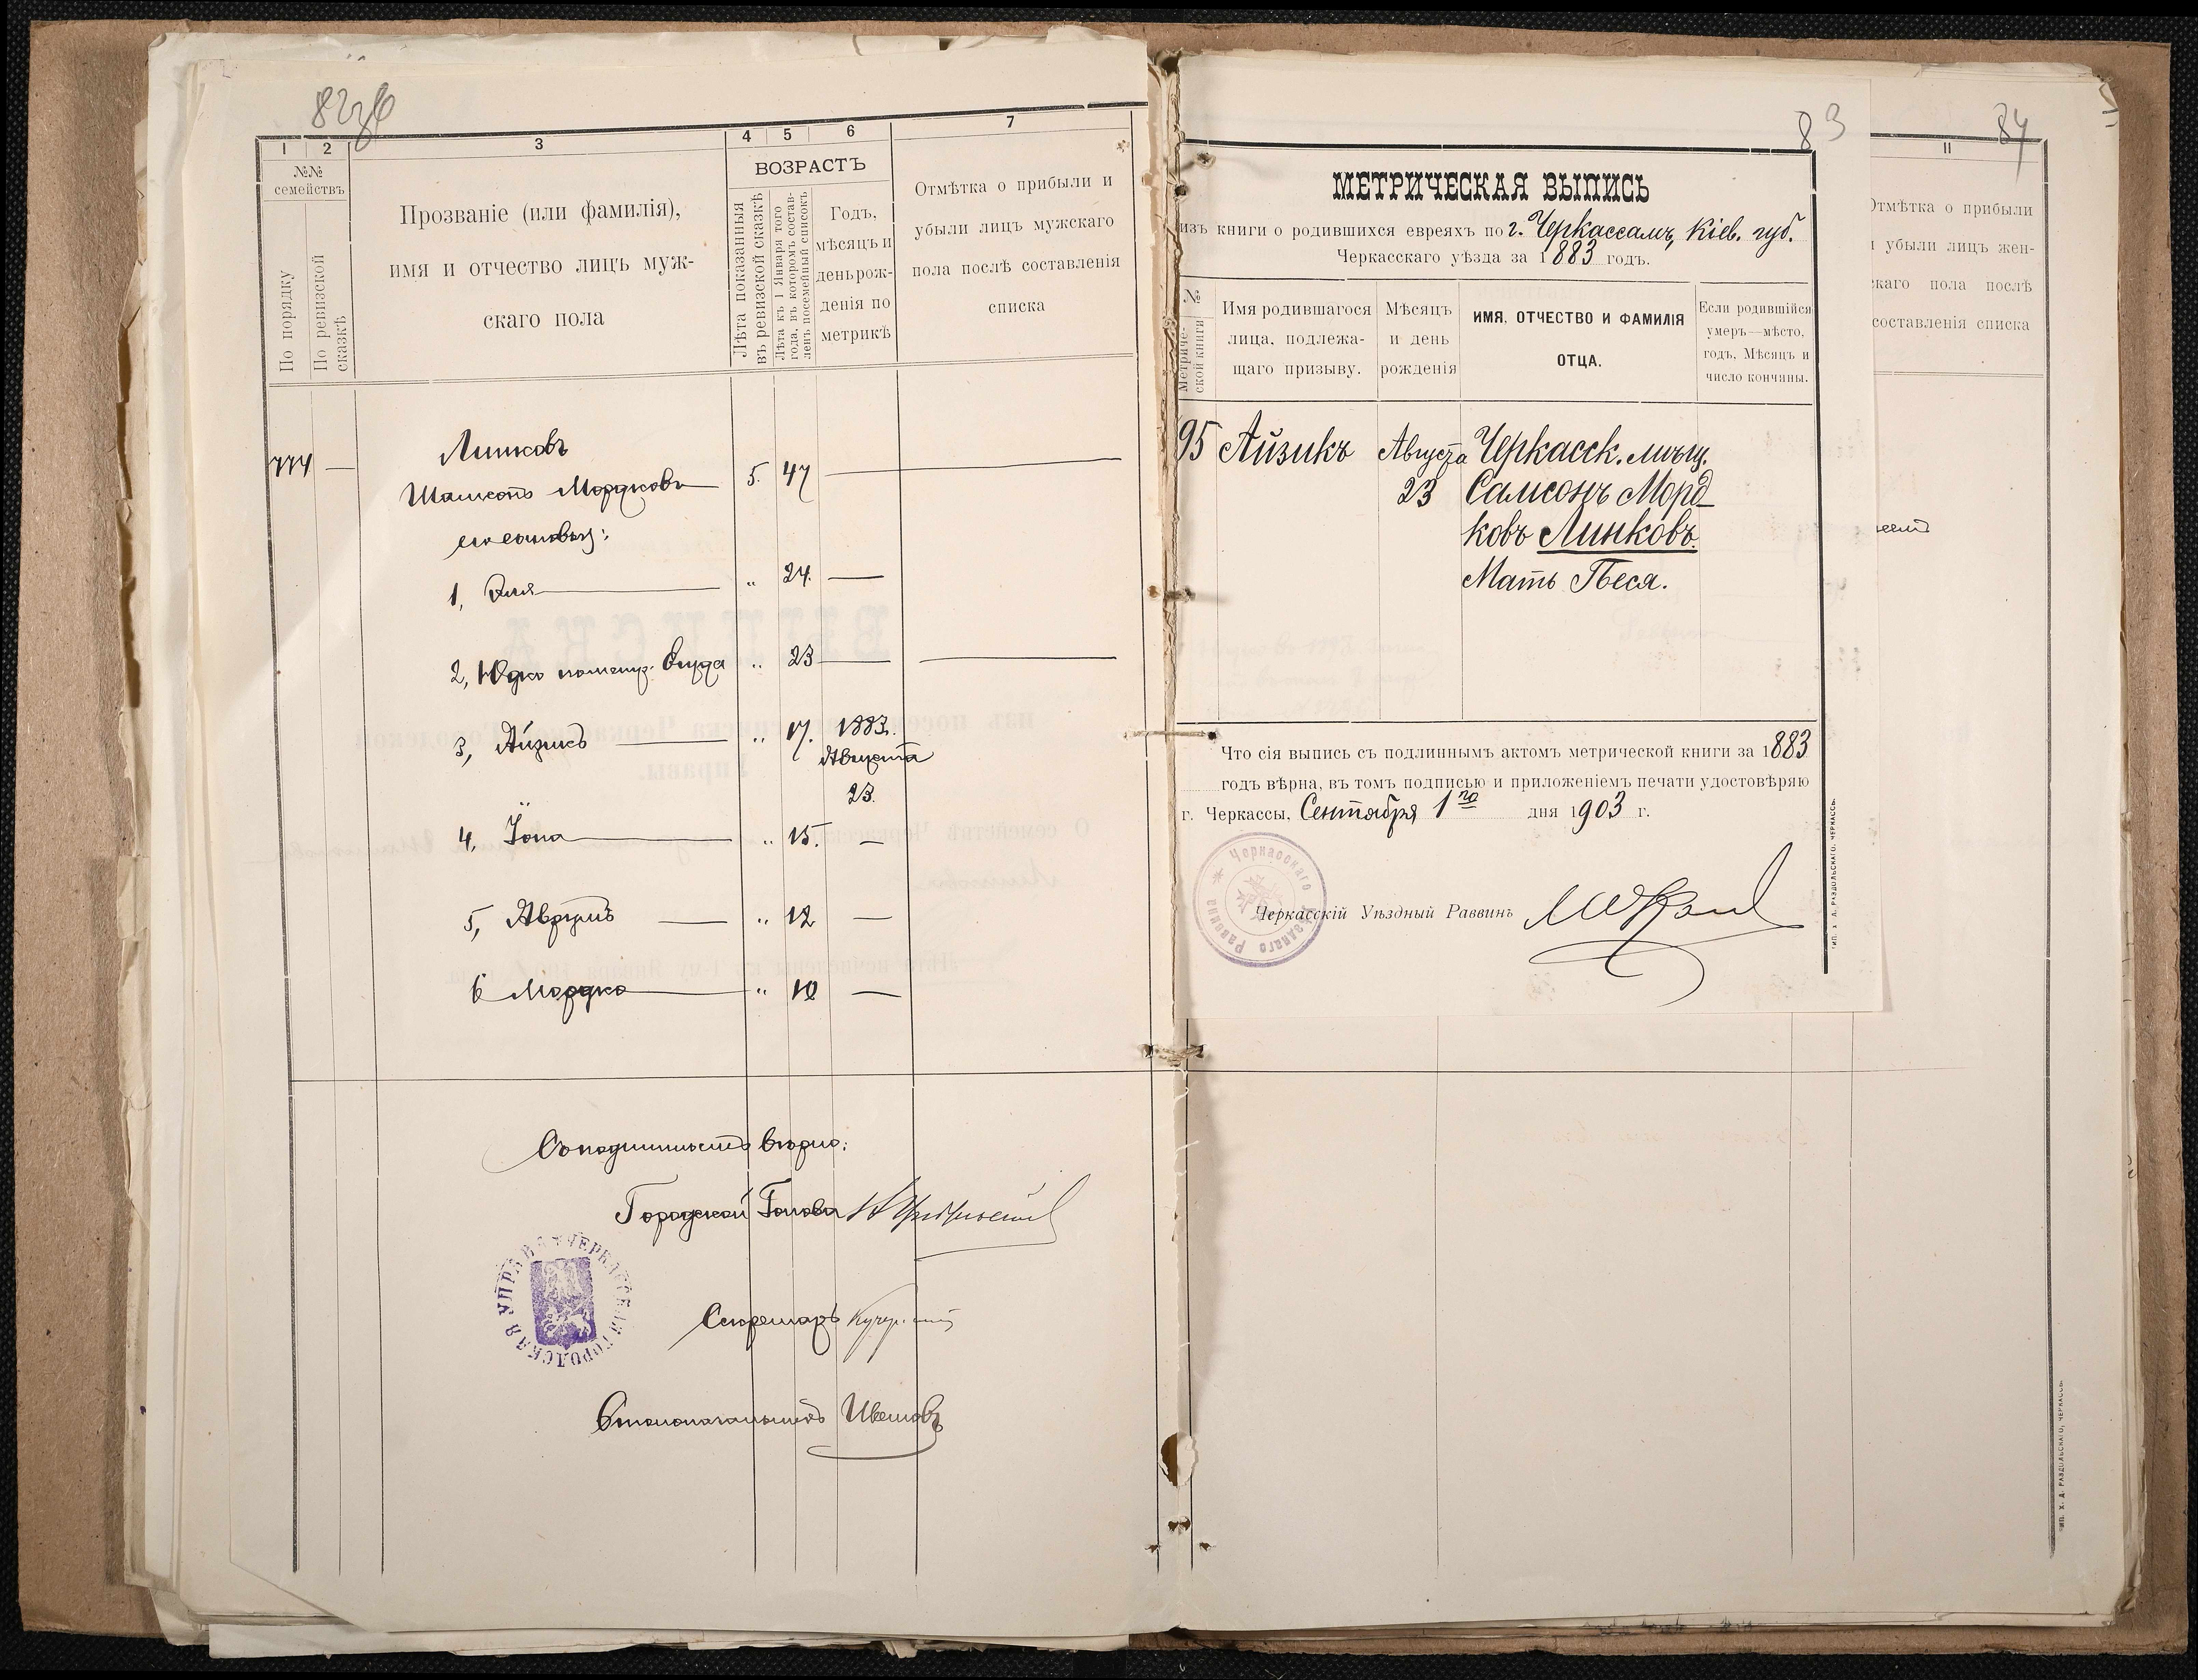 82об
1
2
3
4
5
6
7
№№
семействъ
По порядку
По ревизской
сказкѣ
Прозваніе (или фамилія),
имя и отчество лицъ муж-
скаго пола
ВОЗРАСТЪ
Лѣта показанныя
въ ревизской сказкѣ
Лѣта къ 1 Января того
года, въ которомъ состав-
ленъ посемейный списокъ
Годъ,
мѣсяцъ и
день рож-
денія по
метрикѣ
Отмѣтка о прибыли и
убыли лицъ мужскаго
пола послѣ составленія
списка
774 —
Линковъ
Шамсонъ Мордковъ 5. 47 —
его сыновья:
1, Эля — „ 24. —
2, Юдко помещ. виуда „ 23 —
3, Айзикъ — „ 17. 1883.
Августа
23.
4, Іона — „ 15. —
5, Аврумъ — „ 12 —
6 Мордко — „ 10 —
Съ подлиннымъ вѣрно:
Городской Голова
Секретарь
Столоначальникъ Ивановъ
ЧЕРКАССКАЯ ГОРОДСКАЯ УПРАВА
83
МЕТРИЧЕСКАЯ ВЫПИСЬ
изъ книги о родившихся евреяхъ по г. Черкассамъ, Кіев. губ.
Черкасскаго уѣзда за 1883 годъ.
№
Метриче-
ской книги
Имя родившагося
лица, подлежа-
щаго призыву.
Мѣсяцъ
и день
рожденія
ИМЯ, ОТЧЕСТВО И ФАМИЛІЯ
ОТЦА.
Если родившійся
умеръ—мѣсто,
годъ, Мѣсяцъ и
число кончины.
95 Айзикъ Августа Черкасск. мѣщ.
23 Самсонъ Морд-
ковъ Линковъ.
Мать Песя.
Что сія выпись съ подлиннымъ актомъ метрической книги за 1883
годъ вѣрна, въ томъ подписью и приложеніемъ печати удостовѣряю
г. Черкассы, Сентября 1го дня 1903 г.
Черкасскій Уѣздный Раввинъ
Черкасскаго Уѣзднаго Раввина
ТИП. Х. Д. РАЗДОЛЬСКАГО, ЧЕРКАССЫ.
84
11
Отмѣтка о прибыли
и убыли лицъ жен-
скаго пола послѣ
составленія списка
ТИП. Х. Д. РАЗДОЛЬСКАГО, ЧЕРКАССЫ.